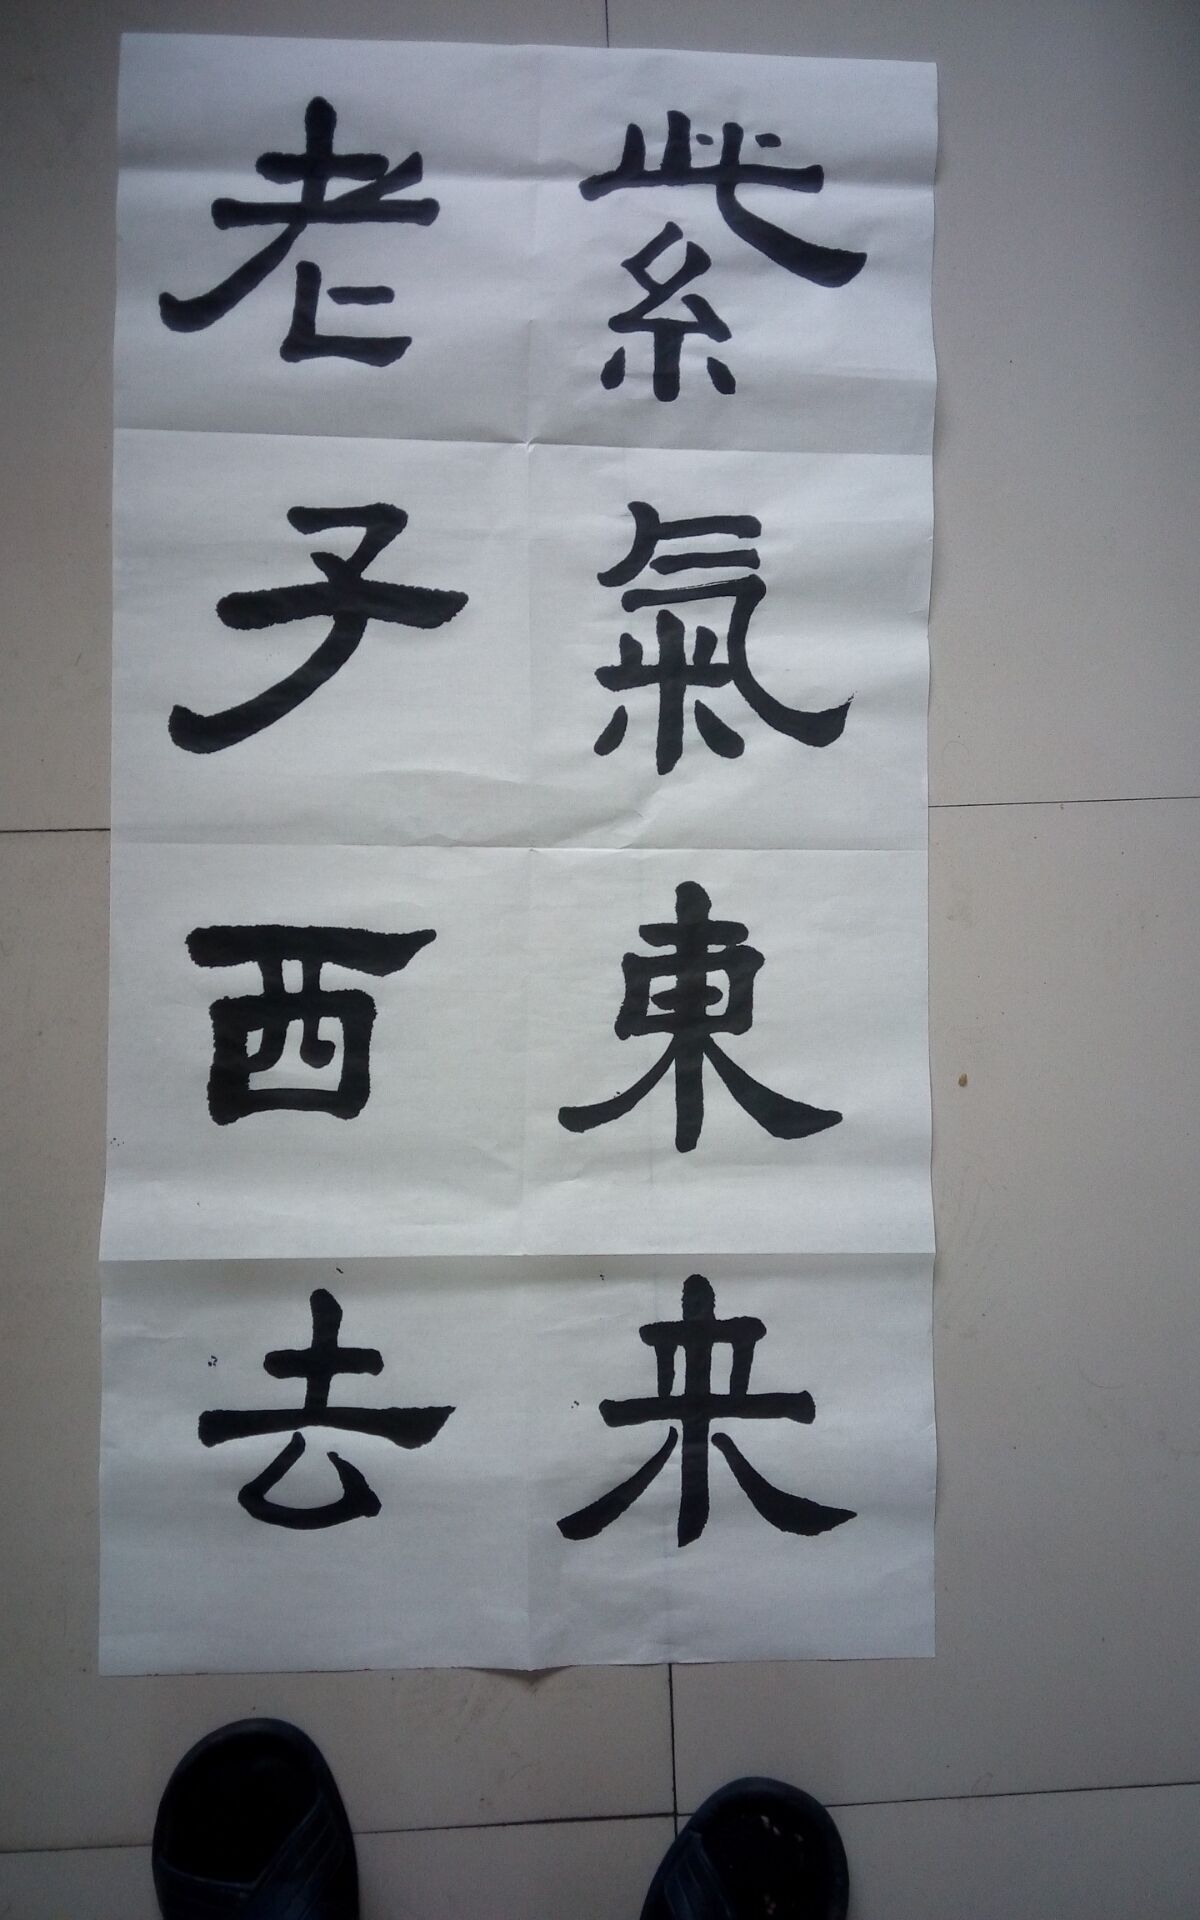 紫氣東来
老子西去